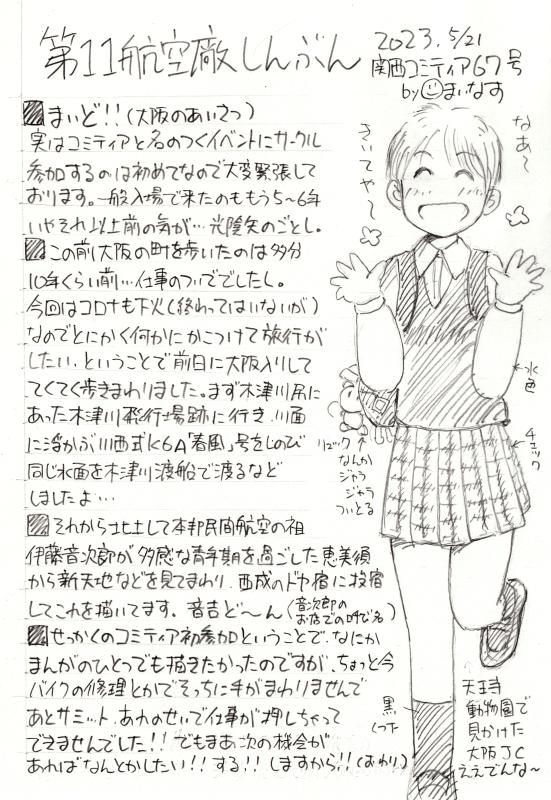 第11航空廠しんぶん
2023.5/21
関西コミティア67号
by まいなす
まいど!!(大阪のあいさつ)
実はコミティアと名のつくイベントにサークル
参加するのは初めてなので大変緊張して
おります。一般入場で来たのももう5〜6年
いやそれ以上前の気が…光陰矢のごとし。
この前大阪の町を歩いたのは多分
10年くらい前…仕事のついででしたし。
今回はコロナも下火(終わってはいないが)
なのでとにかく何かにかこつけて旅行が
したい、ということで前日に大阪入りして
てくてく歩きまわりました。まず木津川尻に
あった木津川飛行場跡に行き、川面
に浮かぶ川西式K6A「春風」号をしのび
同じ水面を木津川渡船で渡るなど
しましたよ…
それから北上して本邦民間航空の祖
伊藤音次郎が多感な青年期を過ごした恵美須
から新天地などを見てまわり、西成のドヤ宿に投宿
してこれを描いてます。音吉ど〜ん(音次郎の
お店での呼び名)
せっかくのコミティア初参加ということで、なにか
まんがのひとつでも描きたかったのですが、ちょっと今
バイクの修理とかでそっちに手がまわりませんで
あとサミット、あれのせいで仕事が押しちゃって
できませんでした!!でもまあ次の機会が
あればなんとかしたい!!する!!しますから!!(おわり)
なあ〜
きいてや〜
水色
チェック
リュック
なんか
ジャラ
ジャラ
ついとる
黒
くつ下
天王寺
動物園で
見かけた
大阪JC
ええでんな〜